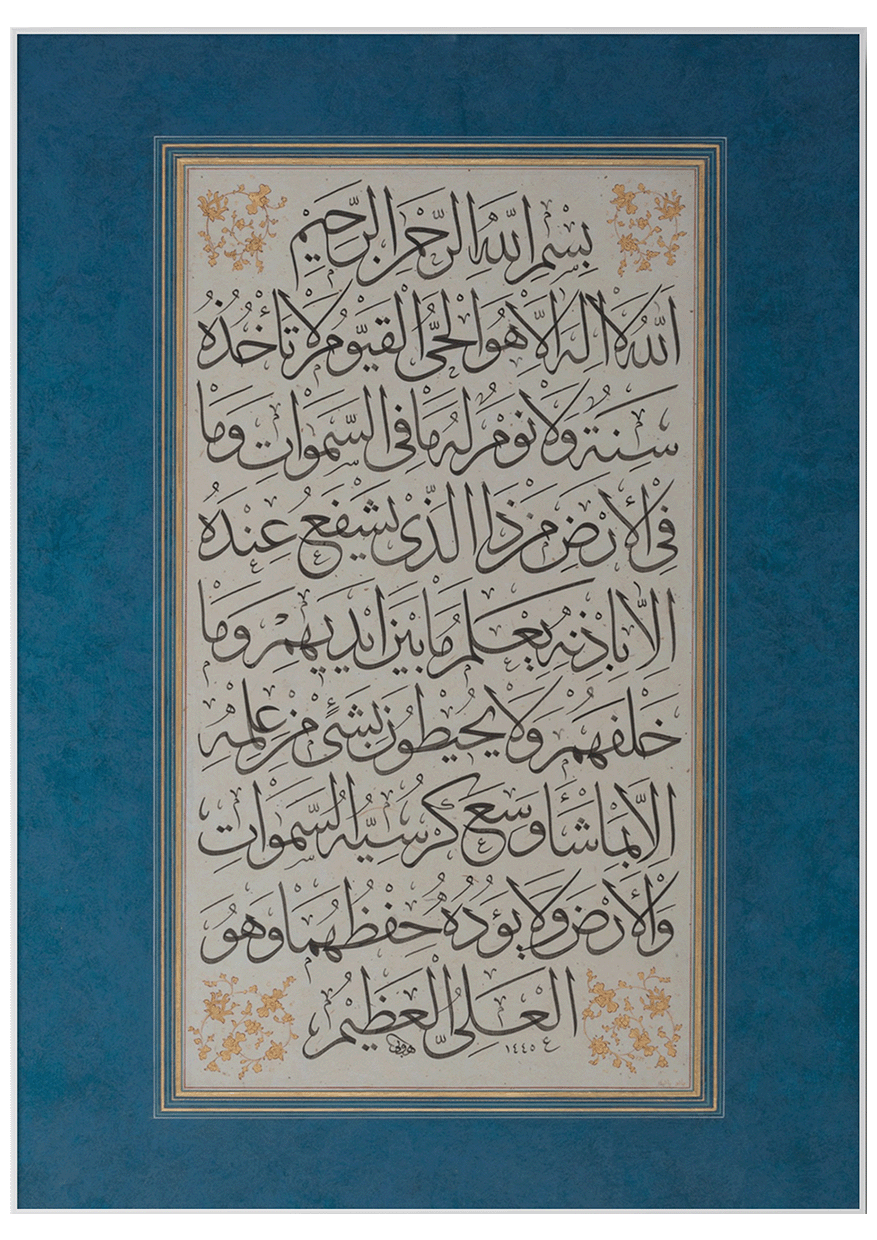 بسم الله الرحمن الرحيم
الله لا اله الا هو الحي القيوم لا تأخذه
سنة ولا نوم له ما في السموات وما
في الأرض من ذا الذي يشفع عنده
الا باذنه يعلم ما بين ايديهم وما
خلفهم ولا يحيطون بشئ من علمه
الا بما شاء وسع كرسيه السموات
والأرض ولا يؤده حفظهما وهو
العلي العظيم
ع ١٤٤٥